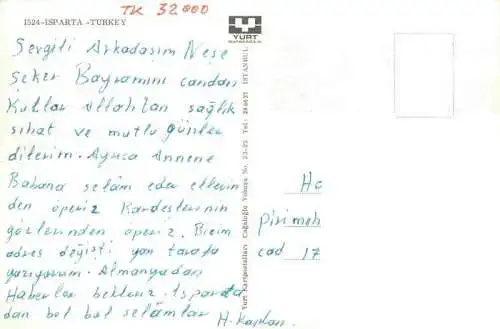 TK 32000
1524-ISPARTA -TURKEY
YURT
Sevgili Arkadaşım Neşe
Şeker Bayramını candan
Kutlar Allahtan sağlık
sıhat ve mutlu günler
dilerim. Ayrıca Annene
Babana selâm eder ellerin
den öperiz Kardeşlerinin
gözlerinden öperiz. Bizim
adres değişti yan tarafa
yazıyorum. Almanyadan
Haberler bekleriz. Isparta
dan bol bol selâmlar H. Kaplan.
Yurt Kartpostalları Cağaloğlu Yokuşu No. 23-25 Tel: İSTANBUL
pirimeh
cad 17